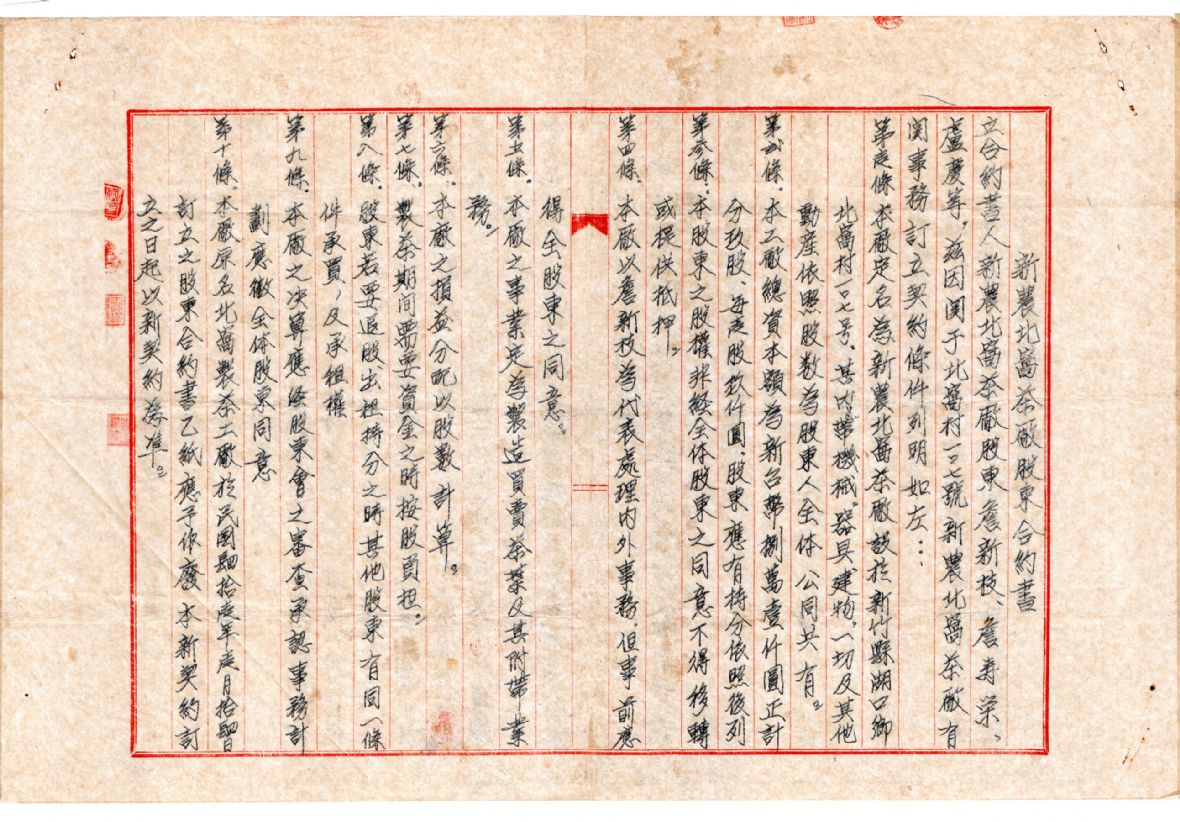 新農北窩茶廠股東合約書
立合約書人新農北窩茶廠股東詹新枝、詹寿栄、
盧慶等。茲因関于北窩村一〇七號新農北窩茶廠有
関事務訂立契約條件列明如左：
第壱條 本廠定名為新農北窩茶廠設於新竹縣湖口鄉
北窩村一〇七号、其内帶機械。器具建物。一切及其他
動產依照股数為股東人全体公同共有。
第弍條。本工廠總資本額為新台幣捌萬壹仟圓正計
分玖股、每壱股玖仟圓。股東應有持分依照後列
第参條。本股東之股權非経全体股東之同意不得移轉
或提供抵押。
第四條。本廠以詹新枝為代表處理内外事務。但事前應
得全股東之同意。
第五條。本廠之事業定為製造買賣茶葉及其附帶業
務。
第六條。本廠之損益分配以股數計算。
第七條。製茶期间需要資金之時按股負担。
第八條。股東若要退股出租持分之時其他股東有同一條
件承買，及承租權
第九條。本廠之決算應経股東會之審查承認事務計
劃應徵全体股東同意
第十條。本廠原名北窩製茶工廠於民國四拾壱年壱月拾四日
訂立之股東合約書乙紙應予作廢本新契約訂
立之日起以新契約為準。